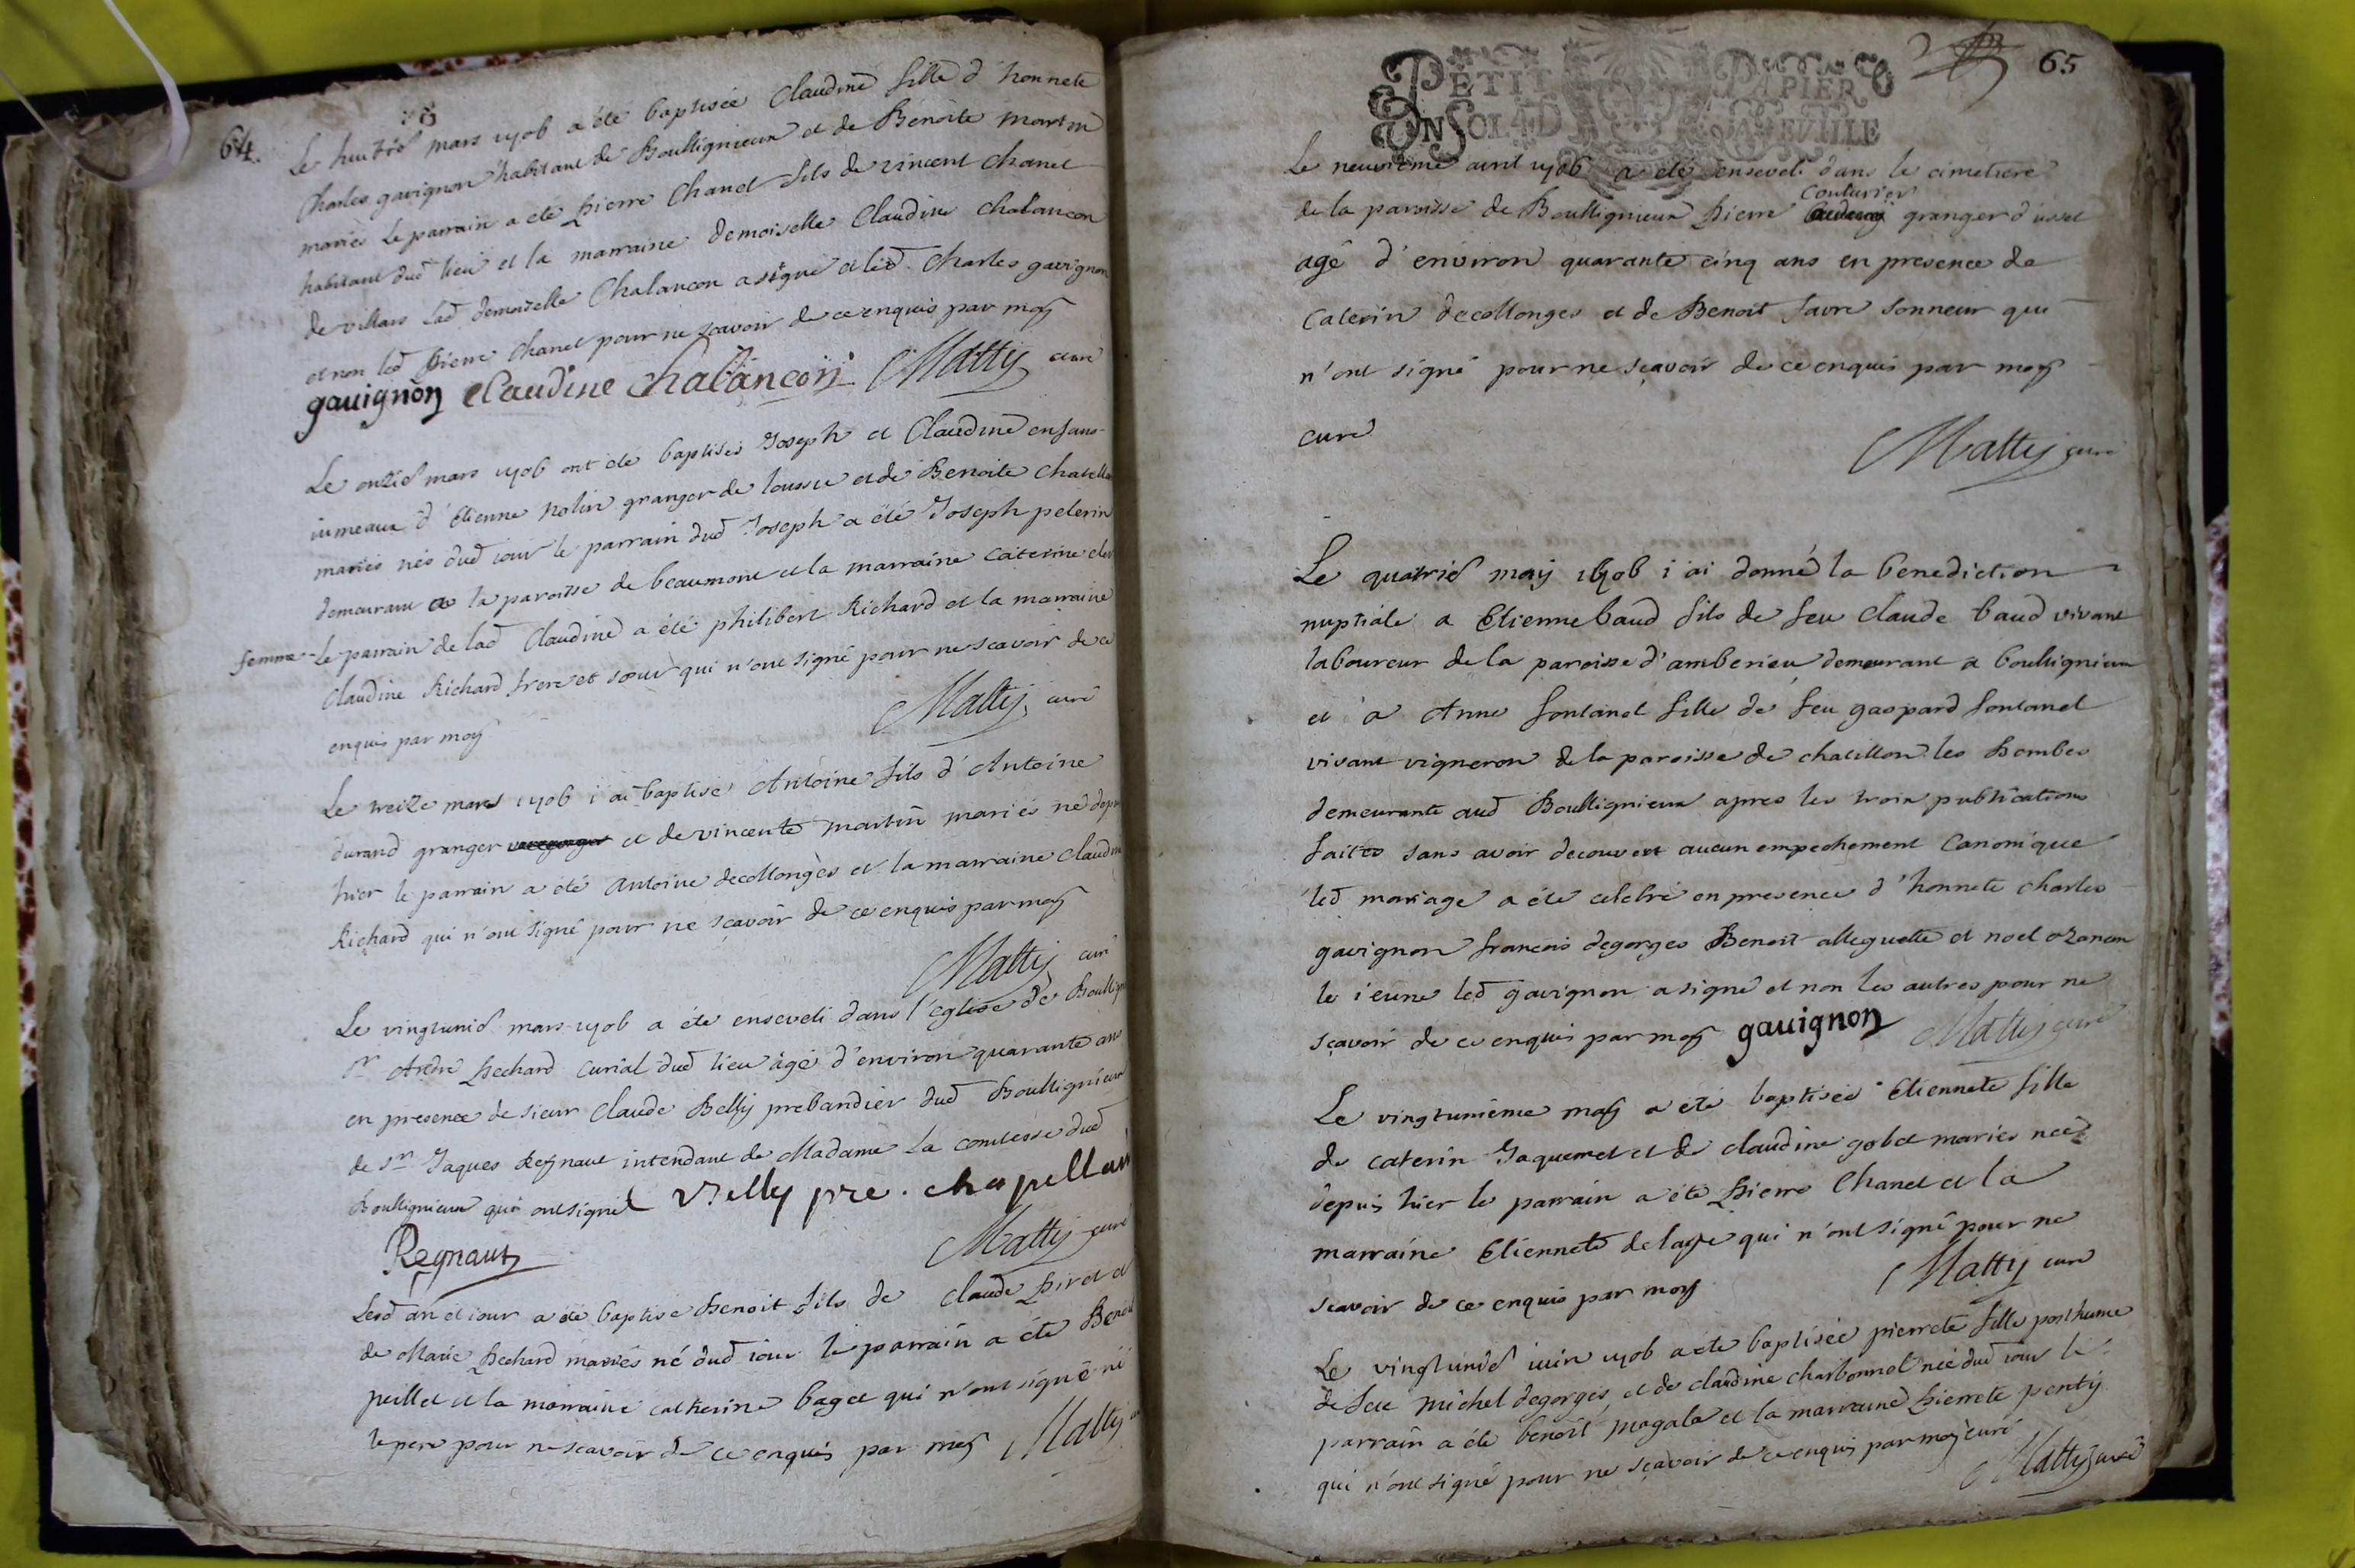 64.
Le huitie mars 1706 a été baptisée Claudine fille d'honnete
Charles gavignon habitant de Boullignieux et de Benoite martin
mariés le parrain a été Pierre Chanel fils de vincent Chanel
habitant dud lieu et la marraine demoiselle Claudine Chalancon
de villars lad demoiselle Chalancon a signé et led. Charles gavignon
et non led Pierre Chanel pour ne scavoir de ce enquis par moy
gauignon Claudine chalancon Matty curé
Le onzie mars 1706 ont été baptisés Joseph et Claudine enfans
iumeaux d'Etienne nolin granger de lousse et de Benoite Chatella
mariés nés dud iour le parrain dud Joseph a été Joseph pelerin
demeurant a la paroisse de beaumont et la marraine Caterine
femme - Le parrain de lad Claudine a été philibert Richard et la marraine
Claudine Richard frere et soeur qui n'ont signé pour ne scavoir de ce
enquis par moy Matty curé
Le treize mars 1706 i ai baptisé Antoine fils d'Antoine
durand granger et de vincente martin mariés né depuis
hier le parrain a été antoine decollonges et la marraine Claudine
Richard qui n'ont signé pour ne scavoir de ce enquis par moy
Matty curé
Le vingtunie mars 1706 a été enseveli dans l'eglise de Boullign
sr André Pechard Curial dud lieu agé d'environ quarante ans
en presence de sieur Claude Belly prebandier dud Boullignieux
de sr Jaques Regnaut intendant de Madame La comtesse dud
Boullignieux qui ont signé Velly pre. chapellan
Regnaut Matty curé
Lesd an et iour a été baptisé benoit fils de Claude Pirot et
de Marie Pechard mariés né dud iour le parrain a été Benoit
peillet et la marraine catherine baget qui n'ont signé ni
le pere pour ne scavoir de ce enquis par moy Matty
65
PETIT PAPIER
UN SOL 4 D LA FEUILLE
Le neuvieme avril 1706 a été enseveli dans le cimetiere
Couturier
de la paroisse de Boulligneux Pierre granger d'usset
agé d'environ quarante cinq ans en presence de
Caterin decollonges et de Benoit favre sonneur qui
n'ont signé pour ne sçavoir de ce enquis par moy
curé
Matty curé
Le quatrie may 1706 i ai donné la benediction
nuptiale a Etienne baud fils de feu Claude baud vivant
laboureur de la paroisse d'amberieu demeurant a boullignieux
et a Anne fontanel fille de feu gaspard fontanel
vivant vigneron de la paroisse de chatillon les Dombes
demeurante aud Boulligneux apres les trois publications
faites sans avoir decouvert aucun empechement Canonique
led mariage a été celebré en presence d'honnete charles
gavignon francois degorges Benoit alleguette et noel ozanon
le ieune led gavignon a signé et non les autres pour ne
sçavoir de ce enquis par moy gauignon Matty curé
Le vingtunieme may a été baptisée Etiennete fille
de caterin Jaquemet et de claudine gobet mariés née
depuis hier le parrain a été Pierre Chanel et la
marraine Etiennete delaye qui n'ont signé pour ne
scavoir de ce enquis par moy Matty curé
Le vingtunie iuin 1706 a été baptisée pierrete fille posthume
de feu michel degorges et de claudine charbonnel née dud iour le
parrain a été benoit magala et la marraine Pierrete penty
qui n'ont signé pour ne sçavoir de ce enquis par moy curé
Matty curé